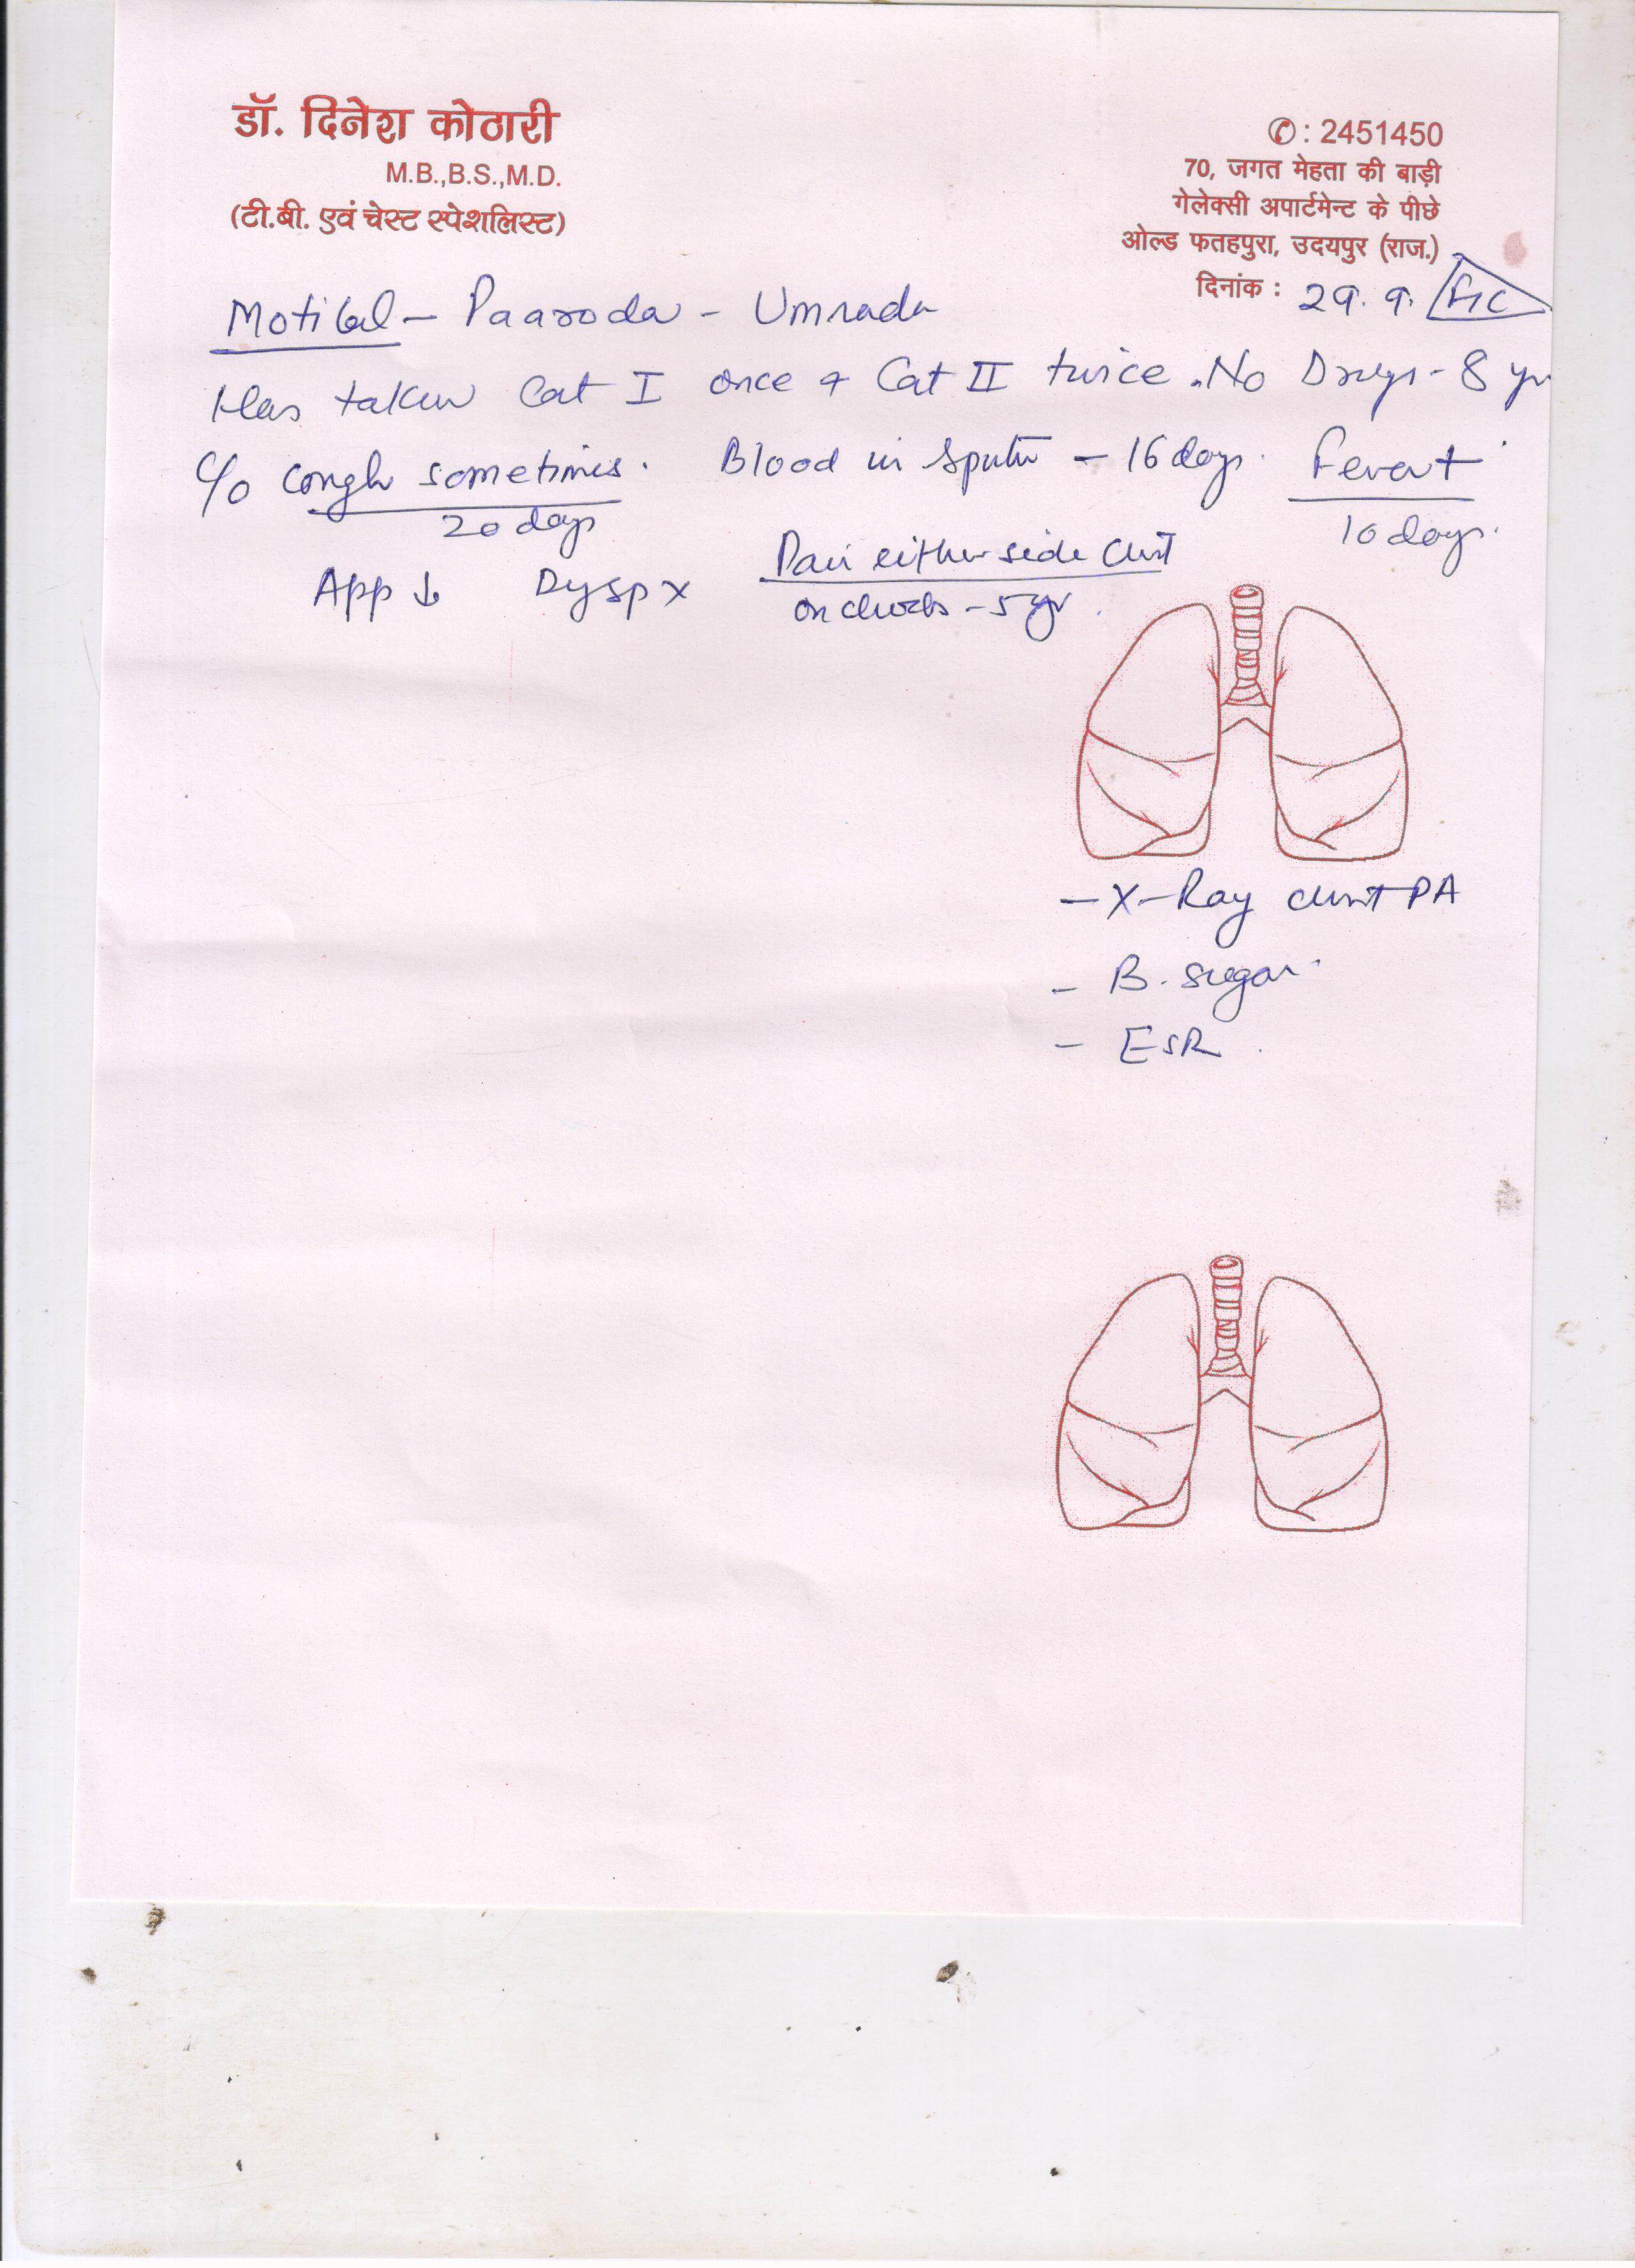 डॉ. दिनेश कोठारी
M.B.,B.S.,M.D.
(टी.बी. एवं चेस्ट स्पेशलिस्ट)
✆: 2451450
70, जगत मेहता की बाड़ी
गेलेक्सी अपार्टमेन्ट के पीछे
ओल्ड फतहपुरा, उदयपुर (राज.)
दिनांक : 29. 9.
Motilal - Paaroda - Umrada
Has taken Cat I once & Cat II twice. No Drugs - 8 yr
C/o Cough sometimes. Blood in Sputm - 16 days. Fever +
20 days 10 days.
App ↓ Dysp x Pain either side Chest
on - 5 yr.
- X-Ray chest PA
- B. Sugar
- ESR